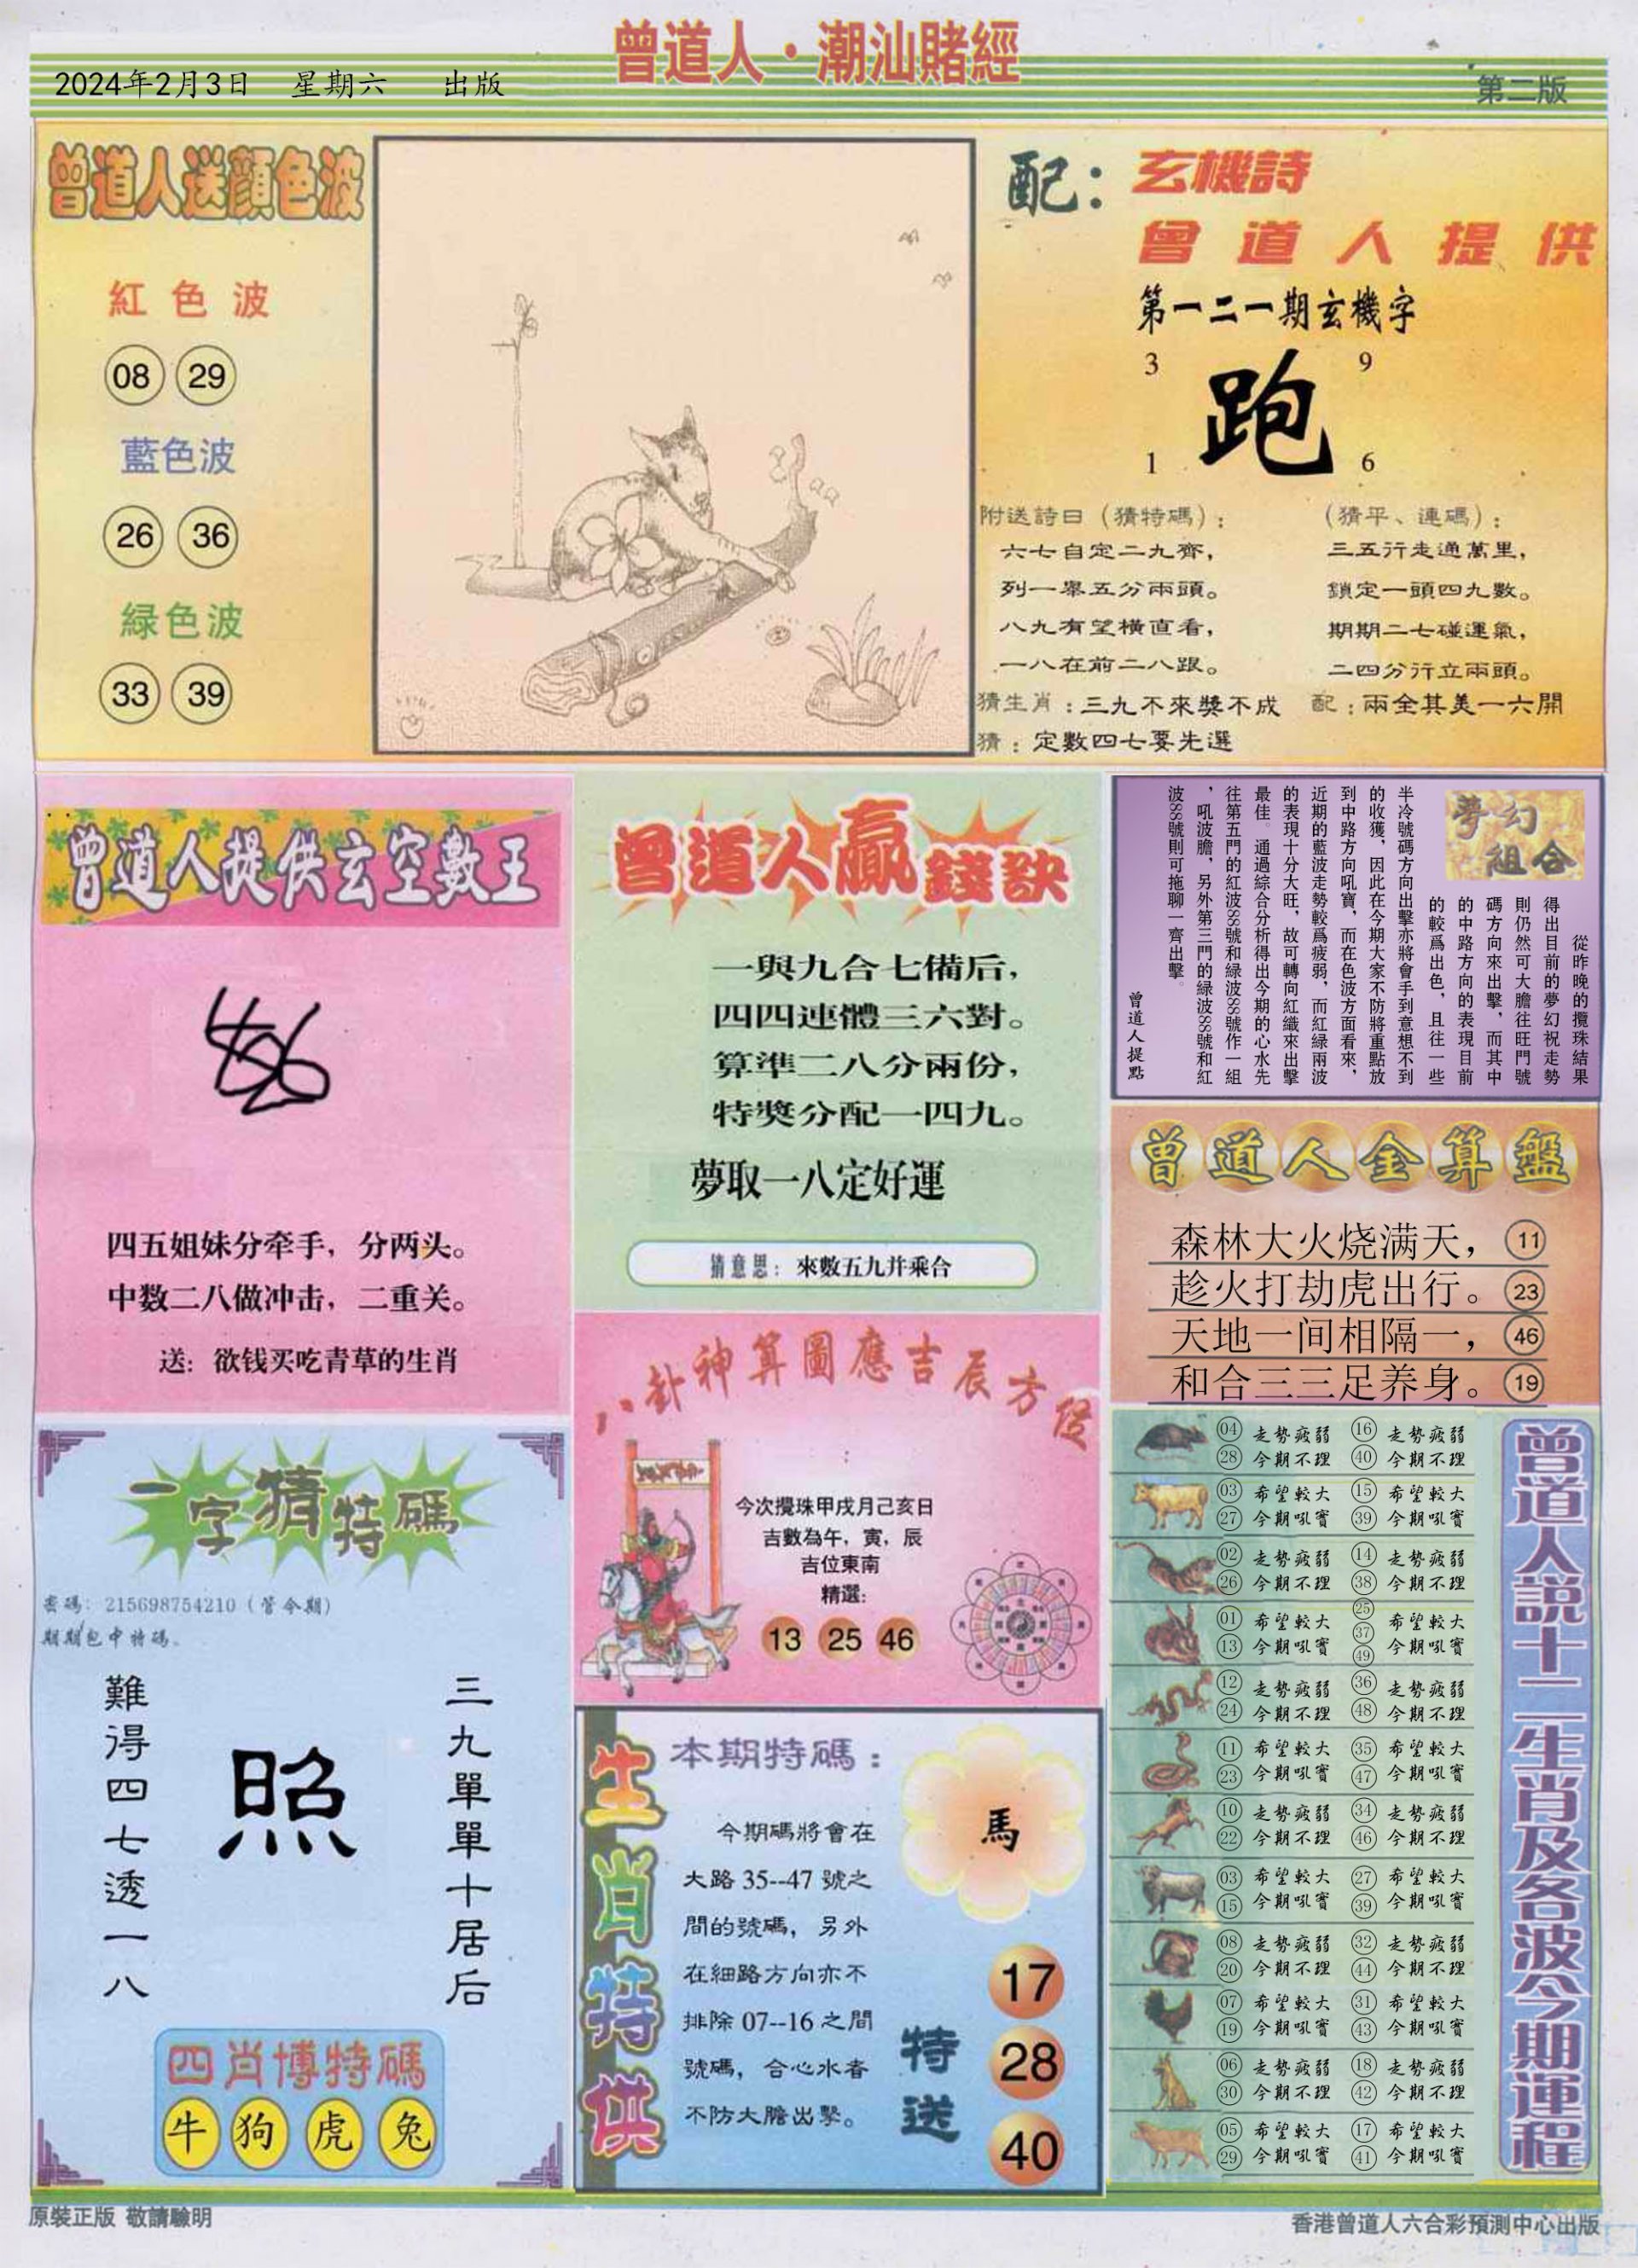 曾道人·潮汕賭經
2024年2月3日 星期六 出版
第二版
曾道人送顏色波
紅色波
08 29
藍色波
26 36
緑色波
33 39
配：
玄機詩
曾道人提供
第一二一期玄機字
3 9
跑
1 6
附送詩曰（猜特碼）：
六七自定二九齊，
列一舉五分兩頭。
八九有望橫直看，
一八在前二八跟。
（猜平、連碼）：
三五行走通萬里，
鎖定一頭四九數。
期期二七碰運氣，
二四分行立兩頭。
猜生肖：三九不來獎不成 配：兩全其美一六開
猜：定數四七要先選
曾道人提供玄空數王
四五姐妹分牵手，分两头。
中数二八做冲击，二重关。
送：欲钱买吃青草的生肖
曾道人贏錢訣
一與九合七備后，
四四連體三六對。
算準二八分兩份，
特獎分配一四九。
夢取一八定好運
猜意思：來數五九井乘合
夢幻
組合
從昨晚的攬珠結果
得出目前的夢幻祝走勢
則仍然可大膽往旺門號
碼方向來出擊，而其中
的中路方向的表現目前
的較爲出色，且往一些
半冷號碼方向出擊亦將會手到意想不到
的收獲，因此在今期大家不防將重點放
到中路方向吼寶，而在色波方面看來，
近期的藍波走勢較爲疲弱，而紅緑兩波
的表現十分大旺，故可轉向紅織來出擊
最佳。通過綜合分析得出今期的心水先
往第五門的紅波88號和緑波88號作一組
，吼波膽，另外第三門的緑波88號和紅
波88號則可拖聊一齊出擊。
曾道人提點
曾道人金算盤
森林大火烧满天，11
趁火打劫虎出行。23
天地一间相隔一，46
和合三三足养身。19
八卦神算圖應吉辰方位
今次攪珠甲戌月己亥日
吉數為午，寅，辰
吉位東南
精選：
13 25 46
一字猜特碼
密碼：215698754210（管今期）
期期包中特碼。
三九單單十居后
照
難得四七透一八
四肖博特碼
牛 狗 虎 兔
生肖特供
本期特碼：
今期碼將會在
大路35--47號之
間的號碼，另外
在細路方向亦不
排除07--16之間
號碼，合心水者
不防大膽出擊。
馬
特送
17
28
40
曾道人說十二生肖及各波今期運程
04 走勢疲弱 16 走勢疲弱
28 今期不理 40 今期不理
03 希望較大 15 希望較大
27 今期吼寶 39 今期吼寶
02 走勢疲弱 14 走勢疲弱
26 今期不理 38 今期不理
01 希望較大 25 37 希望較大
13 今期吼寶 49 今期吼寶
12 走勢疲弱 36 走勢疲弱
24 今期不理 48 今期不理
11 希望較大 35 希望較大
23 今期吼寶 47 今期吼寶
10 走勢疲弱 34 走勢疲弱
22 今期不理 46 今期不理
03 希望較大 27 希望較大
15 今期吼寶 39 今期吼寶
08 走勢疲弱 32 走勢疲弱
20 今期不理 44 今期不理
07 希望較大 31 希望較大
19 今期吼寶 43 今期吼寶
06 走勢疲弱 18 走勢疲弱
30 今期不理 42 今期不理
05 希望較大 17 希望較大
29 今期吼寶 41 今期吼寶
原裝正版 敬請驗明
香港曾道人六合彩預測中心出版